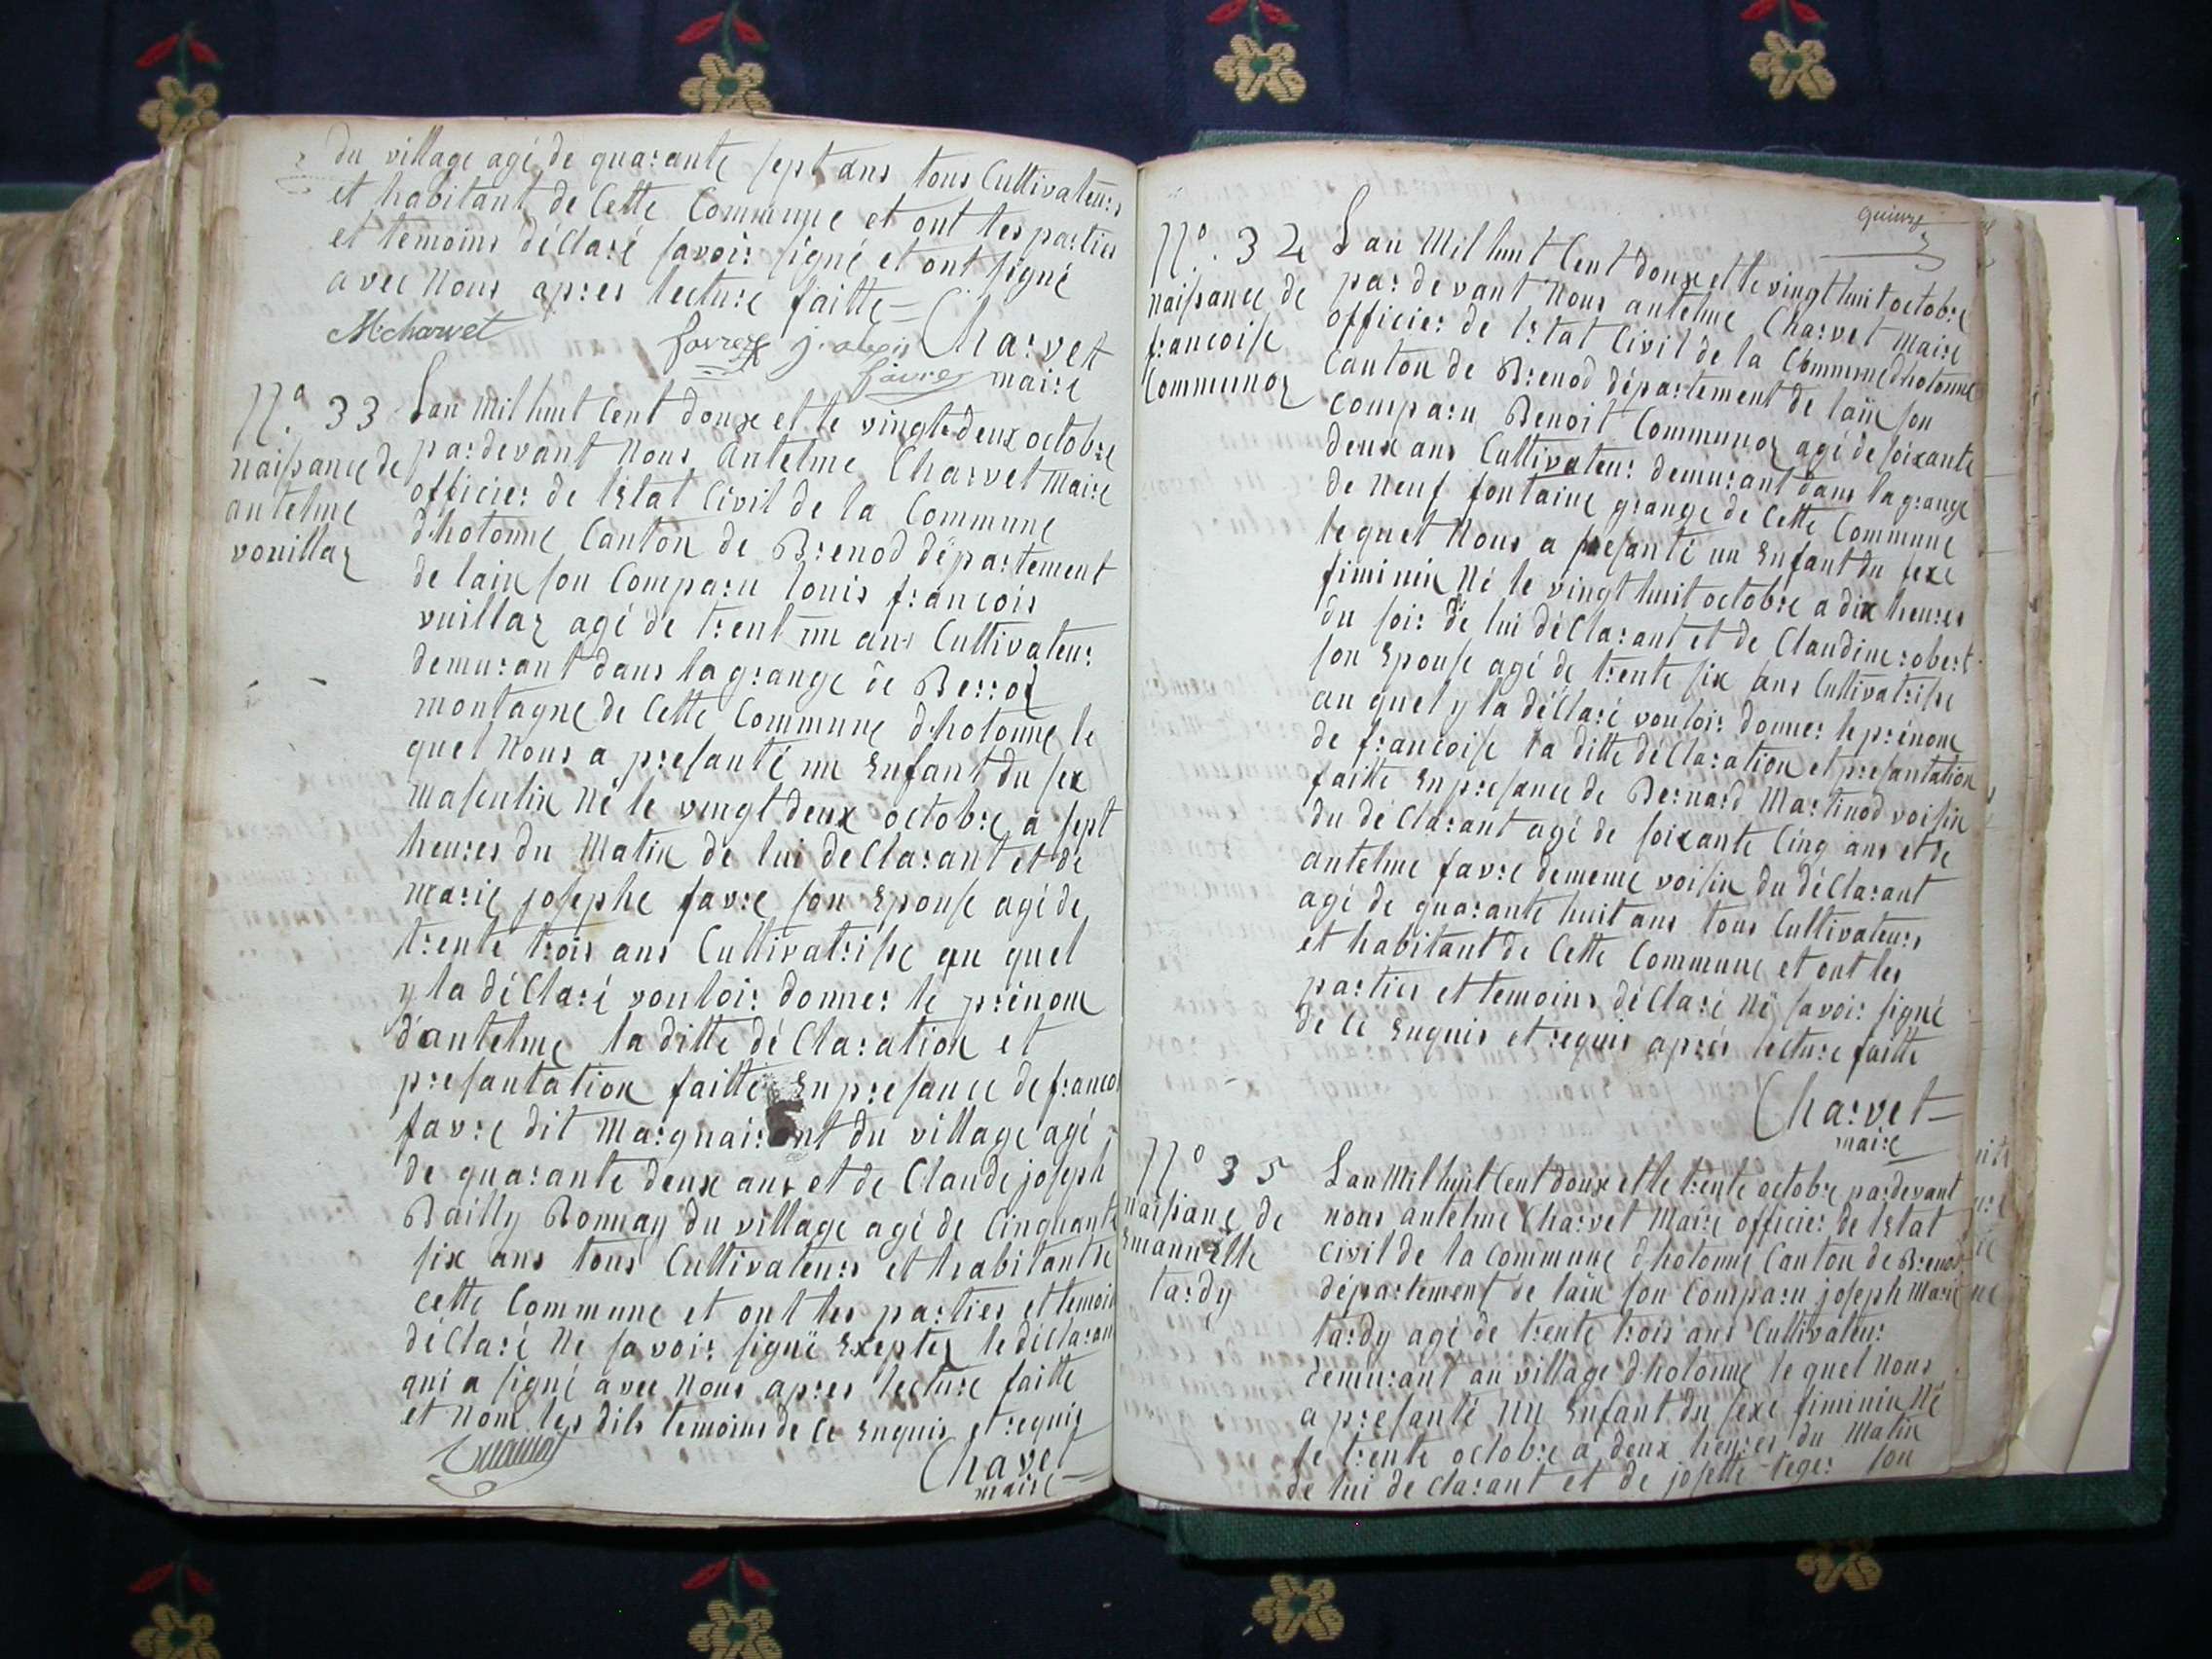 du village agé de quarante sept ans tous Cultivateurs
et habitant de Cette Commune et ont les parties
et temoins déClaré savoir signé et ont signé
avec Nous apres lecture faitte =
Mcharvet favre j. alexis Charvet
favre maire
N.º 33 Lan Mil huit Cent douxe et le vingt deux octobre
naissance de pardevant Nous Antelme Charvet Maire
antelme officier de lEtat Civil de la Commune
vouillaz d'hotonne Canton de Brenod département
de lain sou Comparu louis françois
vuillaz agé de trent un ans Cultivateur
demurant dans la grange de Berroz
montagne de Cette Commune d'hotonne le
quel Nous a presanté un Enfant du sex
Masculin Né le vingt deux octobre a sept
heures du Matin de lui deClarant et de
marie josephe favre son Epouse agé de
trente trois ans Cultivatrisse au quel
y la déClaré vouloir donner le prénom
d'antelme la ditte déClaration et
presantation faitte En presance de francoi
favre dit Marquairont du village agé
de quarante deux ans et de Claude joseph
Bailly Bonnay du village agé de Cinquante
six ans tous Cultivateurs et habitant de
cette Commune et ont les parties et temoin
déClaré Ne savoir signé Exeptez le déClaran
qui a signé avec Nous apres lecture faitte
et Nom les dits temoins de Ce Enquis et requis
Chavet
maire
quinze
N.º 34 Lan Mil huit Cent douxe et le vingt huit octobre
naissance de pardevant Nous antelme Charvet Maire
francoise officier de lEtat Civil de la Commune dhotonne
Communoz Canton de Brenod département de lain sou
comparu Benoit Communoz agé de soixante
deux ans Cultivateur demurant dans la grange
de Neuf fontaine grange de Cette Commune
lequel Nous a presanté un Enfant du sexe
fiminin Né le vingt huit octobre a dix heures
du soir de lui déClarant et de Claudine robert
son Epouse agé de trente six ans Cultivatrisse
au quel y la déClaré vouloir donner le prénom
de francoise la ditte déClaration et presantation
faitte En presance de Bernard Martinod voisin
du déClarant agé de soixante Cinq ans et de
antelme favre dememe voisin du déClarant
agé de quarante huit ans tous Cultivateurs
et habitant de Cette Commune et ont les
parties et temoins déClaré Né savoir signé
de Ce Enquis et requis aprés lecture faitte
Charvet
maire
N.º 35 Lan Mil huit Cent douxe et le trente octobre pardevant
naissanc de nous antelme Charvet Maire officier de lEtat
EmannuElle civil de la Commune d'hotonne Canton de Brenod
tardy département de lain sou Comparu joseph Marie
tardy agé de trente trois ans Cultivateur
demurant au village d'hotonne le quel Nous
a presanté un Enfant du sexe fiminin Né
le trente octobre a deux heures du Matin
de lui de Clarant et de josette leger son